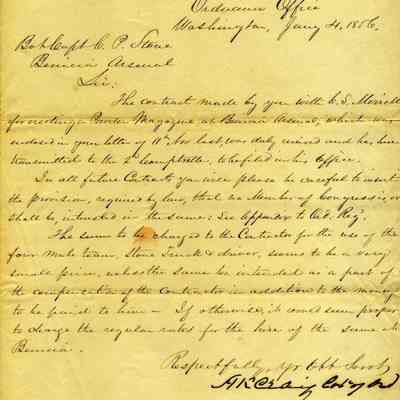 Ordnance Office
Washington, Jany 4, 1856.
Bvt Capt C. P. Stone
Benicia Arsenal
Sir:
The contract made by you with C. S. Merrill
for erecting a Powder Magazine at Benicia Arsenal, which was
enclosed in your letter of 11th Nov last, was duly received and has been
transmitted to the 2d Comptroller, to be filed in his office.
In all future Contracts you will please be careful to insert
the provision, required by law, that no Member of Congress is, or
shall be, interested in the same: See Appendix to Ord. Reg.
The sum to be charged to the Contractor for the use of the
four mule team, Stone Truck & driver, seems to be a very
small price, unless the same be intended as a part of
the compensation of the Contractor in addition to the money
to be paid to him — If otherwise, it would seem proper
to charge the regular rates for the hire of the same at
Benicia.
Respectfully, Yr Obt Servt
H K Craig Col of Ord